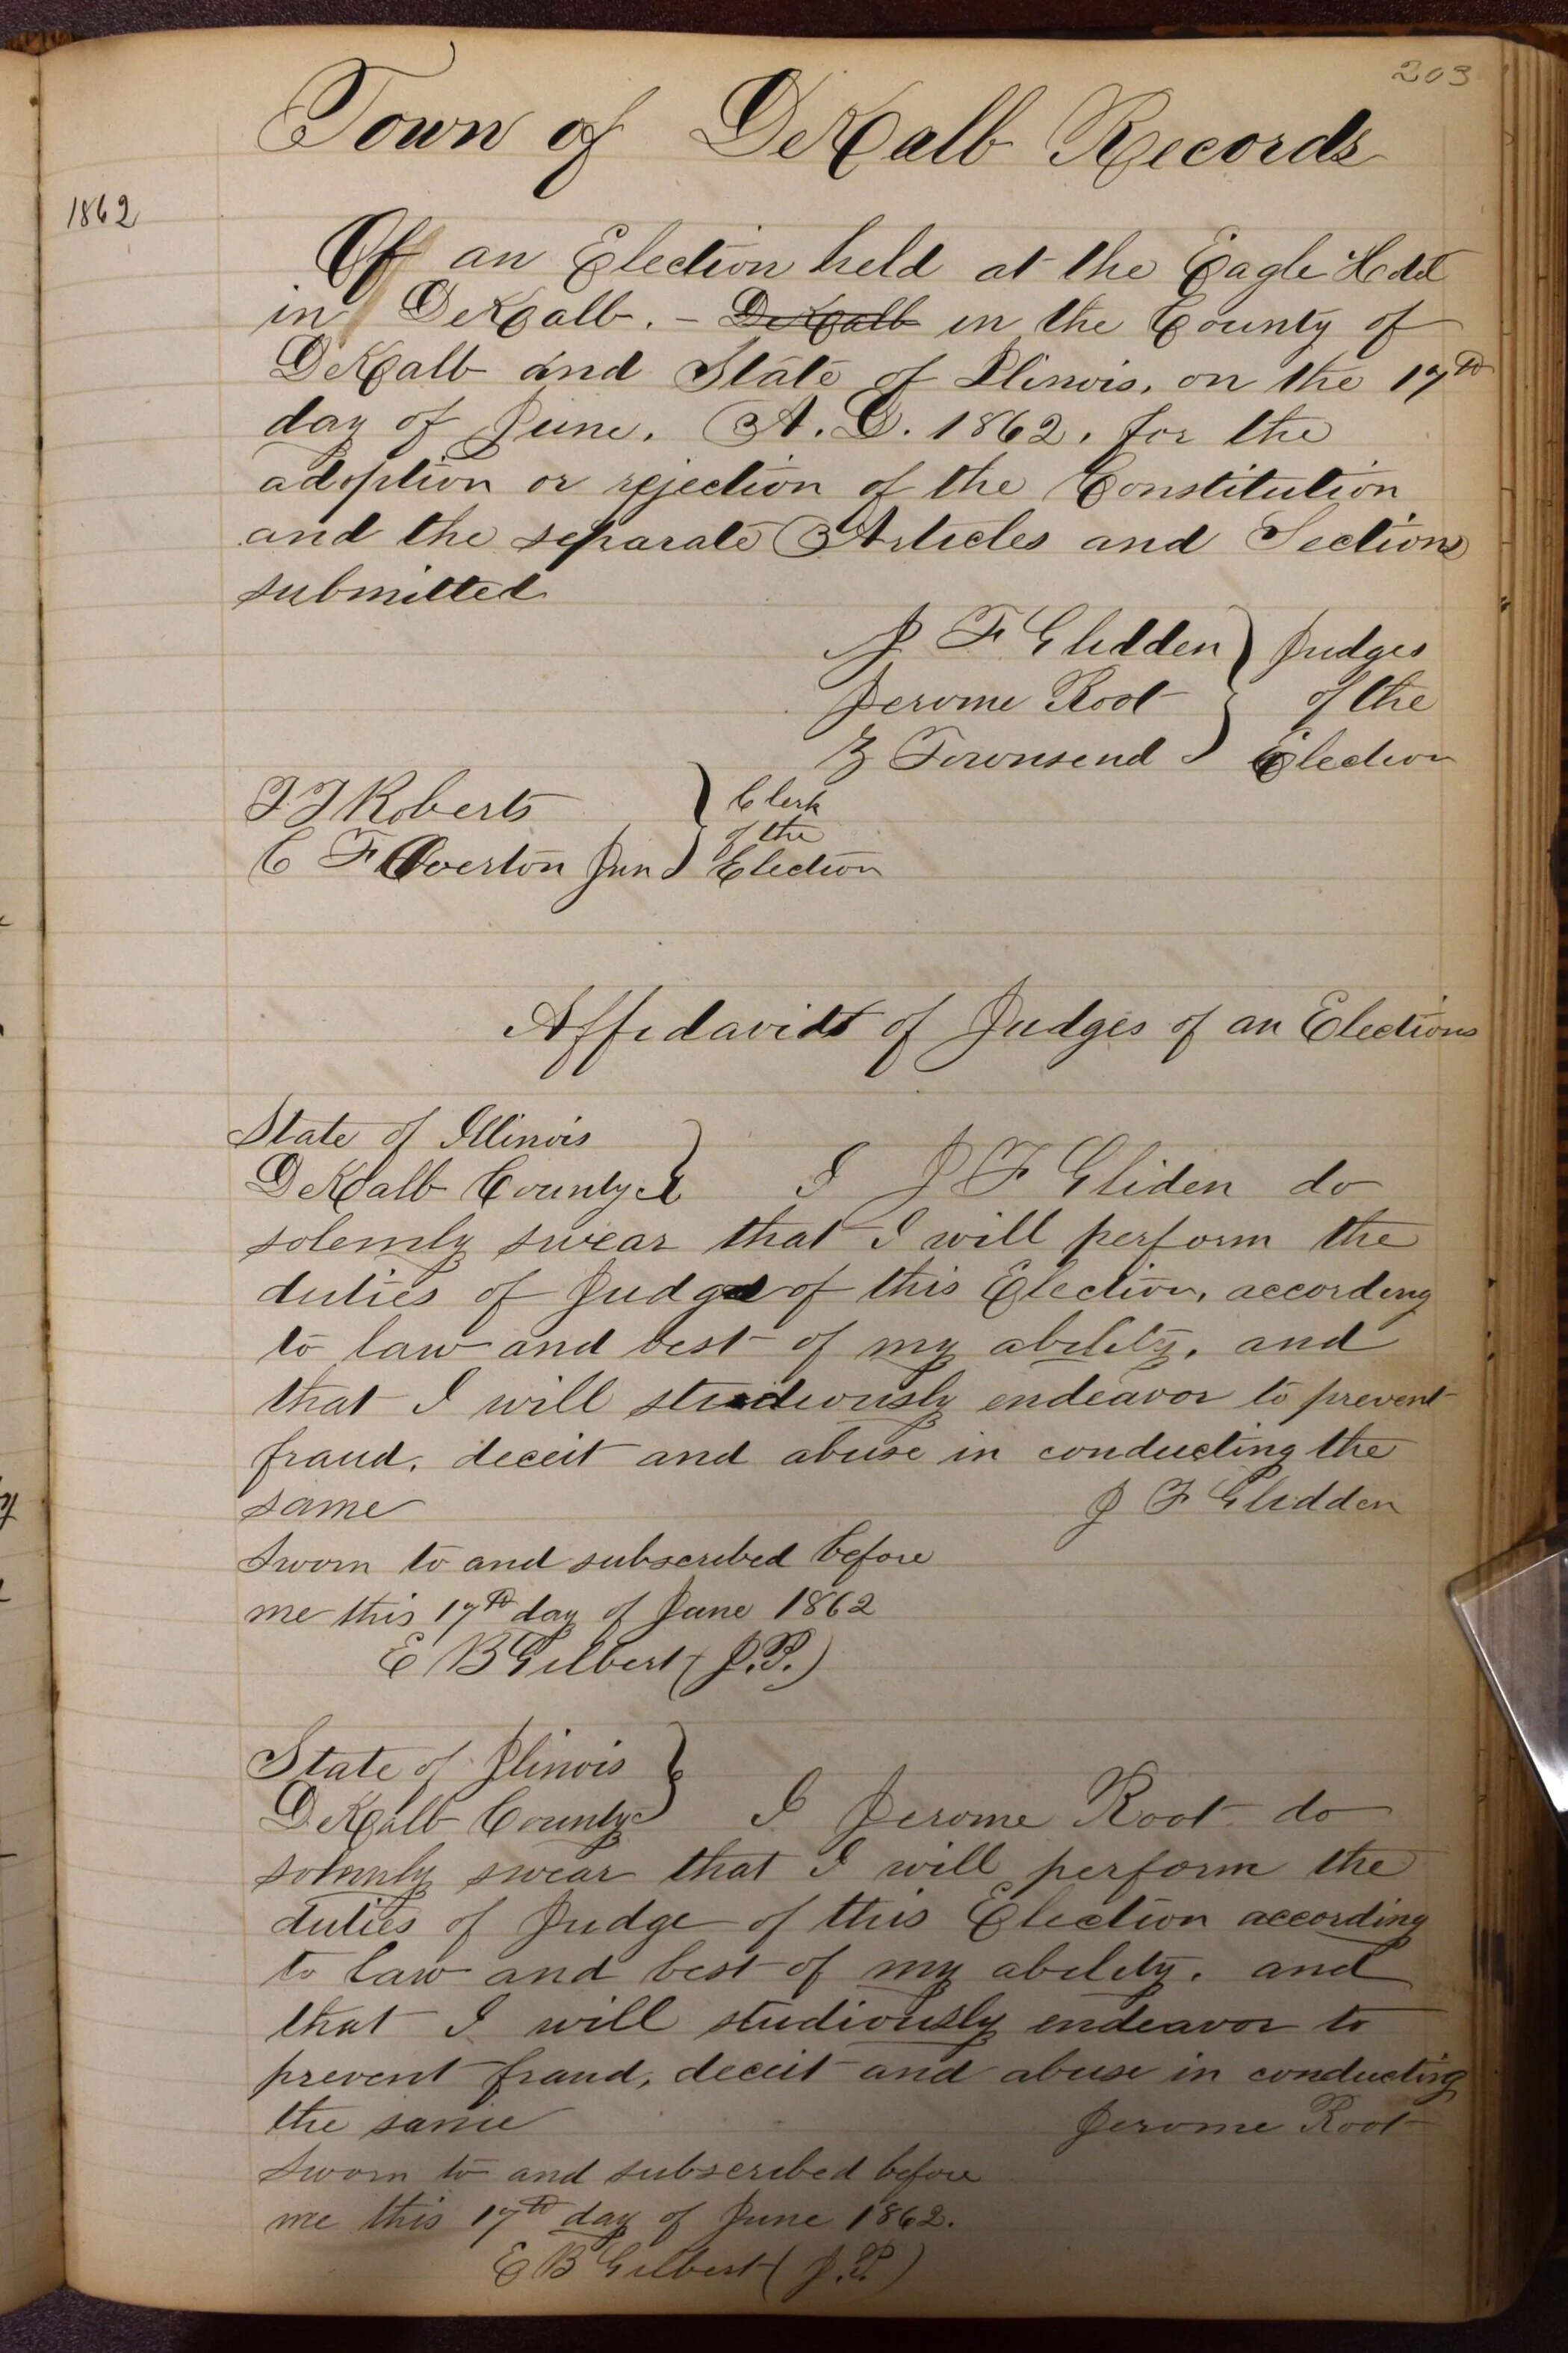 203
Town of DeKalb Records
1862
Of an Election held at the Eagle Hotel
in DeKalb. - DeKalb in the County of
DeKalb and State of Ilinois, on the 17th
day of June. A.D. 1862, for the
adoption or rejection of the Constitution
and the separate Articles and Sections
submitted
J F Glidden } Judges
Jerome Root } of the
Z Townsend } Election
T T Roberts } Clerk
of the
C F Overton Jun } Election
Affidavits of Judges of an Elections
State of Illinois }
DeKalb County } I J F Gliden do
solemly swear that I will perform the
duties of Judge of this Election, according
to law and best of my ability, and
that I will studiously endeavor to prevent
fraud, deceit and abuse in conducting the
same J F Glidden
Sworn to and subscribed before
me this 17th day of June 1862
E B Gilbert (J.P.)
State of Ilinois }
DeKalb County } I Jerome Root do
solemnly swear that I will perform the
duties of Judge of this Election according
to law and best of my ability. and
that I will studiously endeavor to
prevent fraud, deceit and abuse in conducting
the same Jerome Root
Sworn to and subscribed before
me this 17th day of June 1862.
E B Gilbert (J.P.)